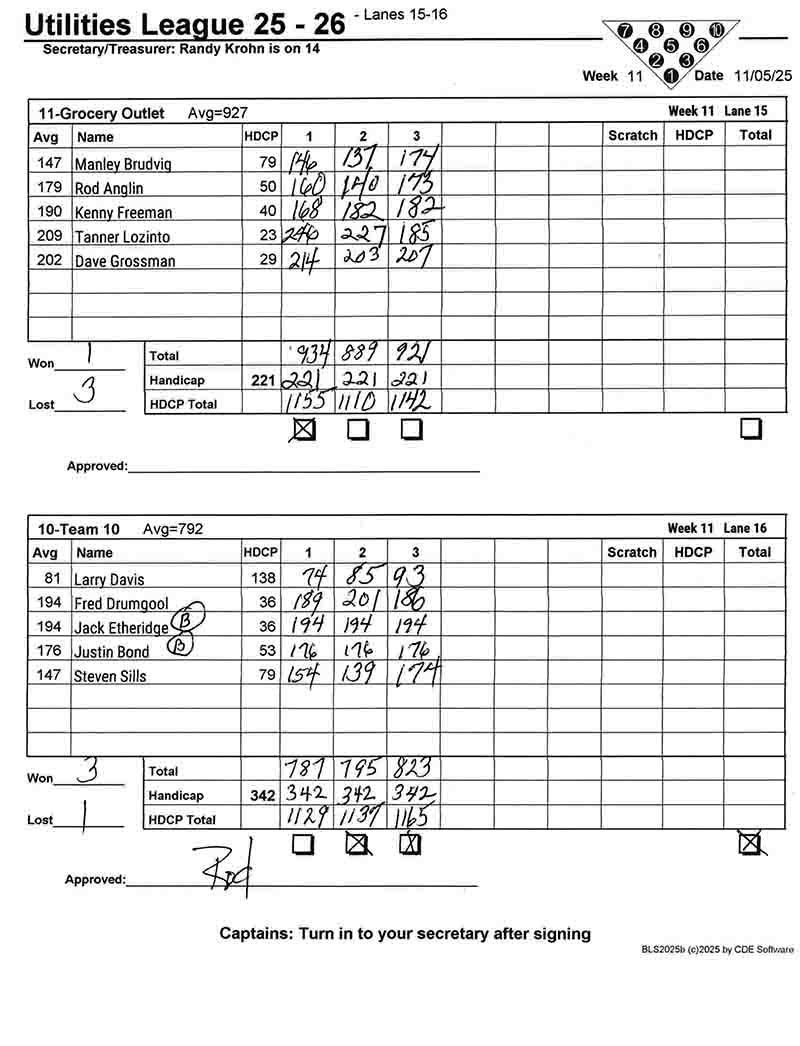 Utilities League 25 - 26 - Lanes 15-16
Secretary/Treasurer: Randy Krohn is on 14
7 8 9 10
4 5 6
2 3
1
Week 11 Date 11/05/25
11-Grocery Outlet Avg=927 Week 11 Lane 15
Avg Name HDCP 1 2 3 Scratch HDCP Total
147 Manley Brudvig 79 146 137 174
179 Rod Anglin 50 160 140 173
190 Kenny Freeman 40 168 182 182
209 Tanner Lozinto 23 246 227 185
202 Dave Grossman 29 214 203 207
Won 1 Total 934 889 921
Handicap 221 221 221 221
Lost 3 HDCP Total 1155 1110 1142
Approved:
10-Team 10 Avg=792 Week 11 Lane 16
Avg Name HDCP 1 2 3 Scratch HDCP Total
81 Larry Davis 138 74 85 93
194 Fred Drumgool 36 189 201 186
194 Jack Etheridge B 36 194 194 194
176 Justin Bond B 53 176 176 176
147 Steven Sills 79 154 139 174
Won 3 Total 787 795 823
Handicap 342 342 342 342
Lost 1 HDCP Total 1129 1137 1165
Approved: Rod
Captains: Turn in to your secretary after signing
BLS2025b (c)2025 by CDE Software